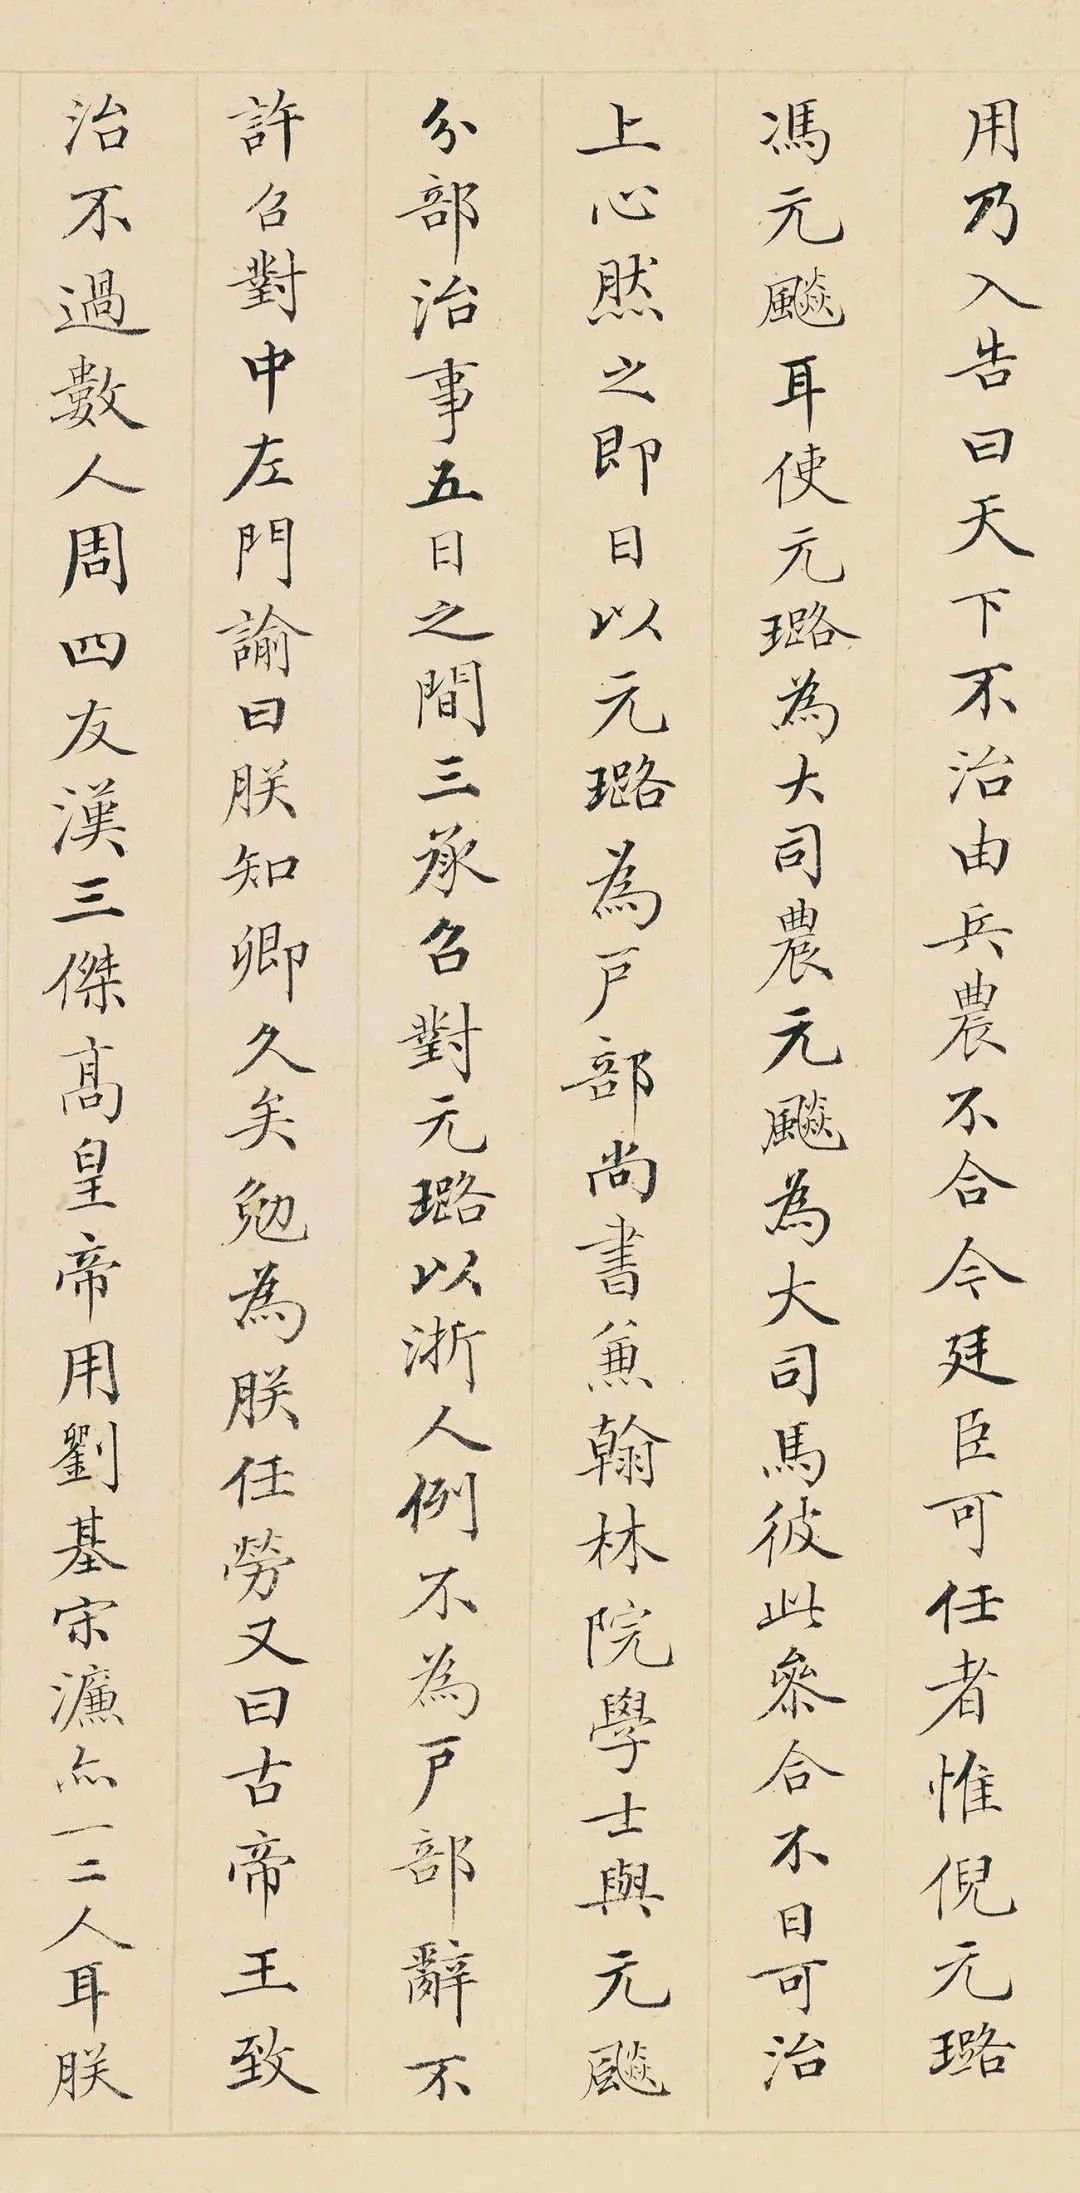 用乃入告曰天下不治由兵農不合今廷臣可任者惟倪元璐
馮元飈耳使元璐為大司農元飈為大司馬彼此叅合不日可治
上心然之即日以元璐為戶部尚書兼翰林院學士與元飈
分部治事五日之間三承召對元璐以浙人例不為戶部辭不
許召對中左門諭曰朕知卿久矣勉為朕任勞又曰古帝王致
治不過數人周四友漢三傑髙皇帝用劉基宋濂亦一二人耳朕